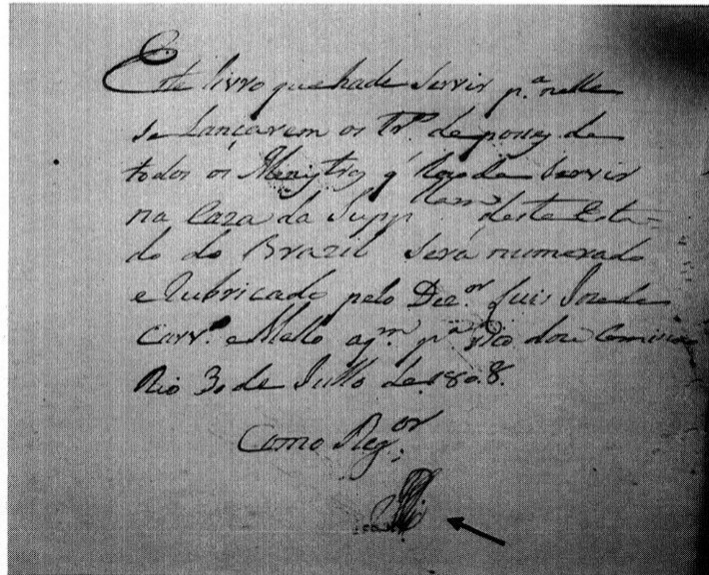 Este livro que hade Servir p.ª nelle
se Lançarem os Tr.ᵒˢ de posses de
todos os Menistros q̃ hão de Servir
na Caza da Supp.ᶜᵃᵐ deste Esta-
do do Brazil Será numerado
e Rubricado pelo Dez.ᵒʳ Luis Joze de
Carv.º e Mello aq.ᵐ p.ª isso dou Comissão
Rio 30 de Julho de 1808.
Como Reg.ᵒʳ